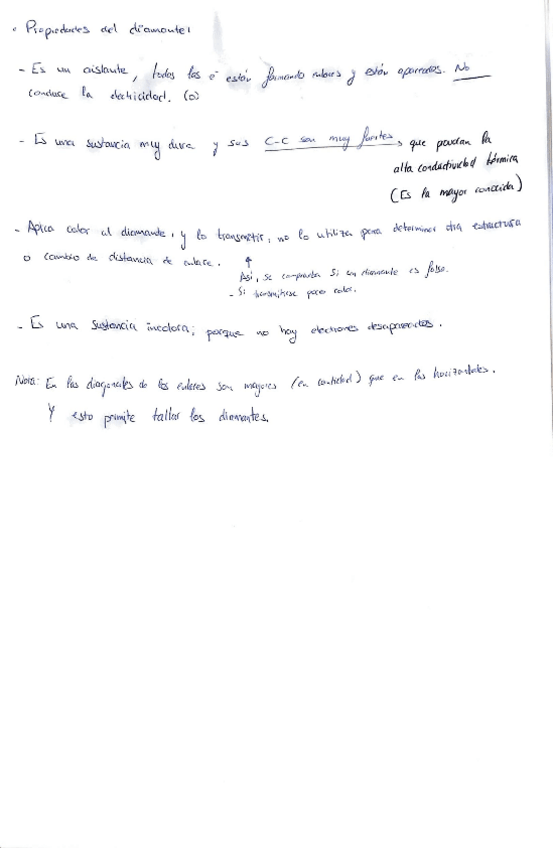 • Propiedades del diamante:
- Es un aislante, todos los e⁻ están formando enlaces y están apareados. No
conduce la electricidad. (0)
- Es una sustancia muy dura y sus C-C son muy fuertes, que la
alta conductividad térmica
(Es la mayor conocida)
- Aplica calor al diamante, y lo transmitir, no lo utiliza para determinar otra estructura
o cambio de distancia de enlace. ↑
Así, se comprueba si un diamante es falso.
- Si transmitiese poco calor.
- Es una sustancia incolora; porque no hay electrones desapareados.
Nota: En las diagonales de los enlaces son mayores (en cantidad) que en las horizontales.
Y esto permite tallar los diamantes.